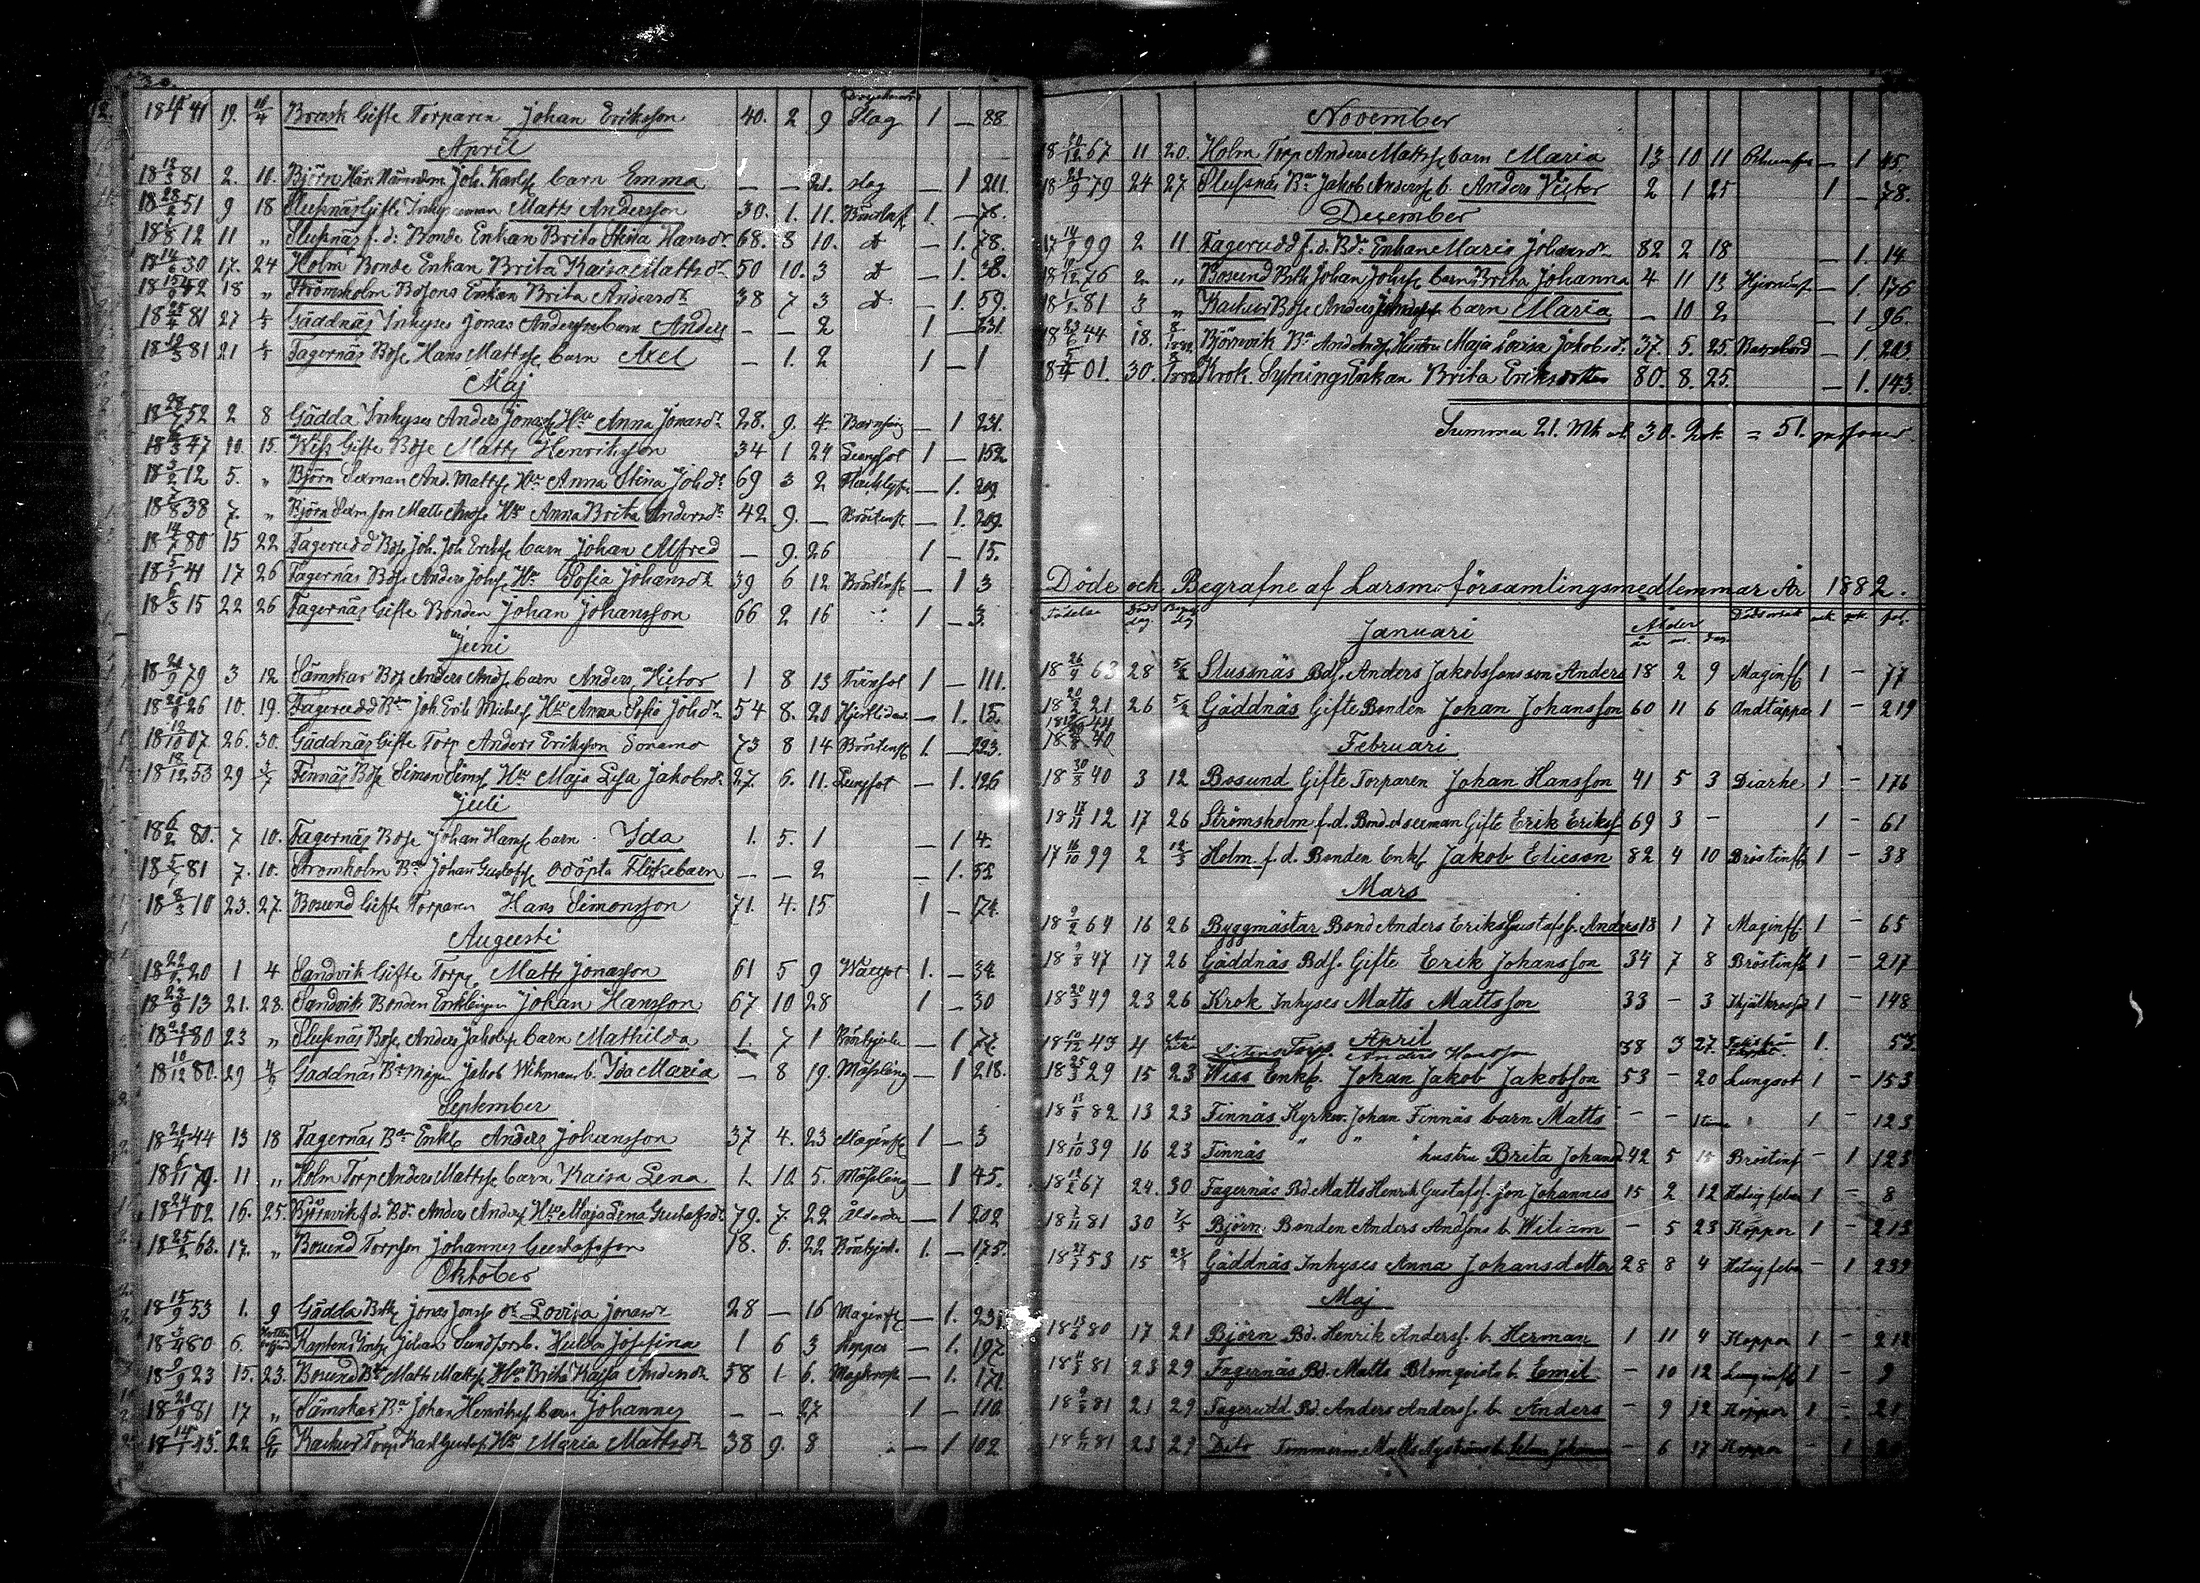 30.
18 11/1 41 19. 10/4 Brask Gifte Torparen Johan Eriksson 40. 2 9 Slag 1 — 88
April
18 12/3 81 2. 10. Björn Joh. Karlss. barn Emma — — 21. slag — 1 211.
18 28/2 51 9 18 Slussnäs Gifte Inhysesman Matts Andersson 30. 1. 11. 1. — 78.
18 1/8 12 11 „ Slussnäs f. d. Bonde Enkan Brita Stina Hansdr 68. 8 10. d:o — 1. 78.
18 14/6 30 17. 24 Holm Bonde Enkan Brita Kaisa Mattsdr 50 10. 3 d:o — 1. 38.
18 15/9 42 18 „ Strömsholm Bdsons Enkan Brita Andersdr 38 7 3 d:o — 1. 59.
18 25/4 81 27 Gäddnäs Inhyses Jonas Anderssons barn Anders — — 2 1 — 231.
18 19/3 81 21 Fagernäs Bdss. Hans Mattss. barn Axel — 1. 2 1 — 1
Maj
18 28/7 52 2 8 Gädda Inhyses Anders Jonass. Hu Anna Jonasdr 28. 9. 4. Barnsäng — 1 231.
18 47 10. 15. Wiss Gifte Bdss. Matts Henriksson 34 1 24 Lungsot 1 — 152
18 3/2 12 5. „ Björn Sexman And. Mattss. Hu Anna Stina Johdr 69 3 2 — 1. 209
18 7/8 38 7. „ Björn Sexm son Matts Andss. Hu Anna Brita Andersdr 42 9. — Bröstinfl — 1. 209.
18 14/7 80 15 22 Fagerudd Bdss. Joh. Joh Erikss. barn Johan Alfred — 9. 26 1 — 15.
18 5/11 41 17 26 Fagernäs Bdss. Anders Johss. Hu Sofia Johansdr 39 6 12 Bröstinfl — 1 3
18 6/3 15 22 26 Fagernäs Gifte Bonden Johan Johansson 66 2 16 „ 1 — 3.
Juni
18 21/9 79 3 12 Sämskar Bdss. Anders Ands. barn Anders Victor 1 8 13 1 — 111.
18 26 10. 19. Fagerudd Bdn Joh. Erik Mickelss. Hu Anna Sofia Johdr 54 8. 20 — 1. 15.
18 12/10 07 26. 30. Gäddnäs Gifte Torp Anders Eriksson Sonamo 73 8 14 Bröstinfl 1. — 223.
18 18/12 53 29 3/7 Finnäs Bdss. Simon Simss. Hu Maja Lisa Jakobsdr 27. 6. 11. Lungsot — 1. 126
Juli
18 6/2 80. 7 10. Fagernäs Bdss. Johan Hanss. barn Ida 1. 5. 1 — 1 4.
18 5/7 81 7. 10. Strömholm Bdn Johan Gustafss. odöpta Flickebarn — — 2 — 1. 55.
18 8/3 10 23. 27. Bosund Gifte Torparen Hans Simonsson 71. 4. 15 1 — 174.
Augusti
18 22/2 20 1 4 Sandvik Gifte Torp. Matts Jonasson 61 5 9 Wattsot 1. — 34.
18 23/9 13 21. 28. Sandvik Bonden Enklingen Johan Hansson 67 10 28 1 — 30
18 22/1 80 23 „ Slussnäs Bdss. Anders Jakobss. barn Mathilda 1. 7 1 — 1 77.
18 10/12 80. 29 4/9 Gäddnäs Jakob Wikmans b. Ida Maria — 8 19. Mässling — 1 218.
September
18 20/4 44 13 18 Fagernäs Bdn Enkl. Anders Johansson 37 4. 23 Maginfl 1 — 3
18 6/11 79. 11 „ Holm Torp Anders Mattss. barn Kaisa Lena 1. 10. 5. Mässling — 1 45.
18 24/1 02 16. 25. Björnvik f.d. Bd. Anders Anderss. Hu Maja Lena Gustafsdr 79. 7. 22 Ålderdom — 1 202
18 25/2 63. 17. „ Bosund Torpson Johannes Gustafsson 18. 6. 22 1. — 175.
Oktober
18 15/9 53 1. 9 Gädda Jonas Jonss. dr Lovisa Jonasdr 28 — 16 Maginfl — 1. 231
18 3/4 80 6. Kaptens Johan Sundfors b. Hulda Josefina 1 6 3 Koppor — 1. 197
18 9/9 23 15. 23. Bosund Bdn Matts Mattss. Hu Brita Kajsa Andersdr 58 1 6. Magkräft — 1. 171.
18 20/9 81 17 „ Sämskar Bdn Johan Henrikss. barn Johannes — — 27 1 — 110
18 14/1 43. 22 6/11 Kackur Torp Karl Gustafs. Hu Maria Mattsdr 38 9. 8 — 1 102
November
18 30/12 67 11 20. Holm Torp Anders Mattss. barn Maria 13 10 11 — 1. 45.
18 29/9 79 24 27 Slussnäs Bdn Jakob Anderss. b. Anders Victor 2 1 25 1 — 78.
December
17 14/9 99 2 11 Fagerudd f. d. Bd. Enkan Maria Johansdr 82 2 18 — 1. 14
18 19/12 76 2 „ Bosund Johan Johss. barn Brita Johanna 4 11 13 Hjerninfl — 1. 176
18 1/2 81 3 „ Kackur Bdss. Anders barn Maria — 10 2 — 1 96.
18 23/6 44 18. Björnvik Bdn And. Andss. Hustru Maja Lovisa Jakobsdr 37. 5. 25. Barnsbörd — 1. 203
18 5/4 01. 30. Krok. Sytnings Enkan Brita Eriksdotter 80. 8. 25. — 1. 143.
Summa 21. Mk o. 30. Qvk. = 51. personer.
Döde och Begrafne af Larsmo församlingsmedlemmar År 1882.
Födelse Död dag Begr. dag Ålder år m. dag. Dödsorsak mk. qvk. pag.
Januari
18 26/9 63 28 5/2 Slussnäs Bdss. Anders Jakobssons son Anders 18 2 9 Maginfl. 1 — 77
18 20/2 21 26 5/2 Gäddnäs Gifte Bonden Johan Johansson 60 11 6 Andtäppa 1 — 219
18 40
Februari
18 30/8 40 3 12 Bosund Gifte Torparen Johan Hansson 41 5 3 Diarhe 1 — 176
18 17/11 12 17 26 Strömsholm f. d. Bond. o. sexman Gifte Erik Erikss. 69 3 — 1 — 61
17 16/10 99 2 12/3 Holm f. d. Bonden Enkl. Jakob Elieson 82 4 10 Bröstinfl 1 — 38
Mars
18 9/2 69 16 26 Byggmästar Bond Anders Erik Gustafs s. Anders 13 1 7 Maginfl. 1 — 65
18 9/8 47 17 26 Gäddnäs Bds. Gifte Erik Johansson 34 7 8 Bröstinfl 1 — 217
18 20/3 49 23 26 Krok Inhyses Matts Mattsson 33 — 3 1 — 148
April
18 10/12 43 4 Torp. Anders Hansson 38 3 27. 1. 53.
18 25/3 29 15 23 Wiss Enkl. Johan Jakob Jakobson 53 — 20 Lungsot 1 — 153
18 82 13 23 Finnäs Kyrkov. Johan Finnäs barn Matts — — 1 — 123
18 1/10 39 16 23 Finnäs „ „ „ hustru Brita Johansd 42 5 15 Bröstinf — 1 123
18 12/2 67 24. 30 Fagernäs Bd. Matts Henrik Gustafss. son Johannes 15 2 12 Hetsig feber 1 — 8
18 7/11 81 30 7/5 Björn Bonden Anders Andsons b. Wiliam — 5 23 Koppor 1 — 213
18 53 15 23/4 Gäddnäs Inhyses Anna Johansdotter 28 8 4 Hetsig feber — 1 239
Maj
18 13/6 80 17 21 Björn Bd. Henrik Anderss. b. Herman 1 11 4 Koppor 1 — 212
18 81 23 29 Fagernäs Bd. Matts Blomqvists b. Emil — 10 12 Lunginfl 1 — 9
18 9/8 81 21 29 Fagerudd Bd. Anders Anderss. b. Anders — 9 12 Koppor 1 — 21
18 6/11 81 23 29 Dito Timmerm. Matts Nyströms b. — 6 17 Koppor — 1